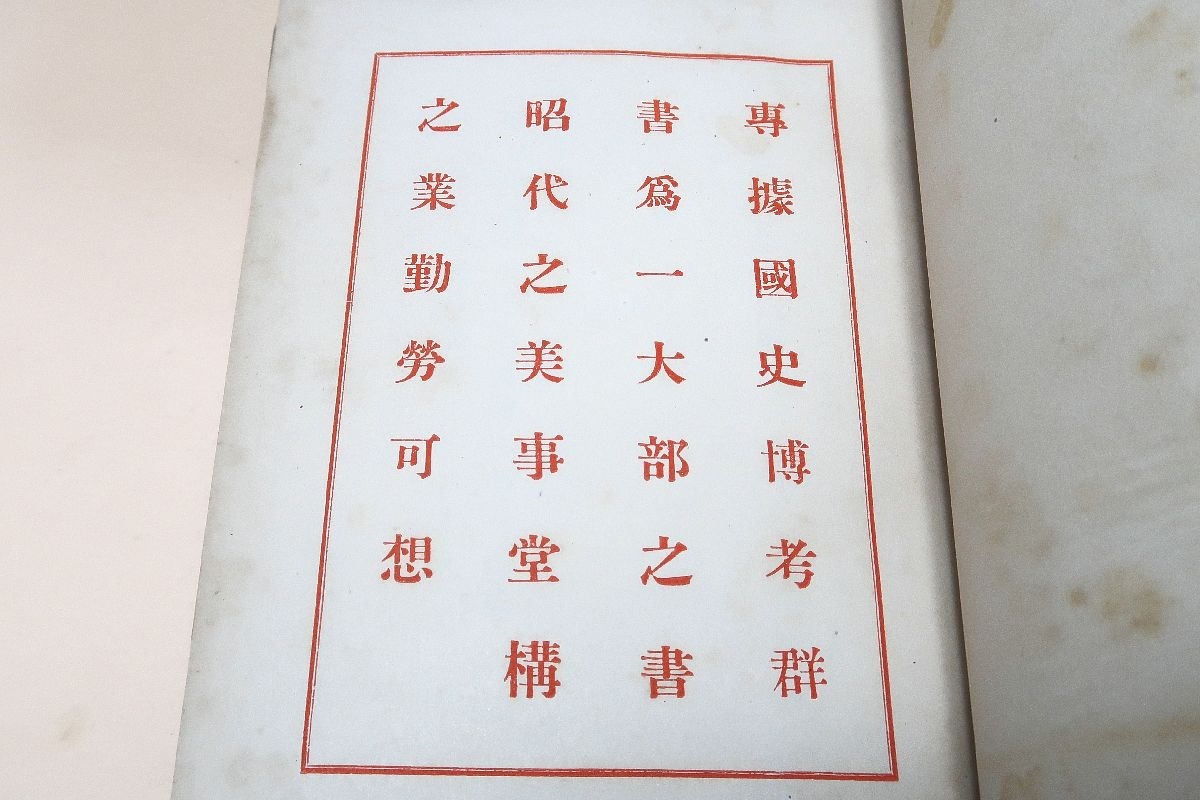 專據國史博考群
書爲一大部之書
昭代之美事堂構
之業勤勞可想